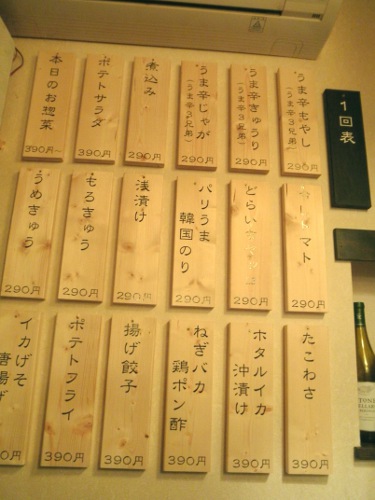 1回表
うま辛もやし
(うま辛3兄弟)
290円
うま辛きゅうり
(うま辛3兄弟)
290円
うま辛じゃが
(うま辛3兄弟)
290円
煮込み
290円
ポテトサラダ
390円
本日のお惣菜
390円~
マト
290円
290円
パリうま
韓国のり
290円
浅漬け
290円
もろきゅう
290円
うめきゅう
290円
たこわさ
390円
ホタルイカ
沖漬け
390円
ねぎバカ
鶏ポン酢
390円
揚げ餃子
390円
ポテトフライ
390円
イカげそ
唐揚げ